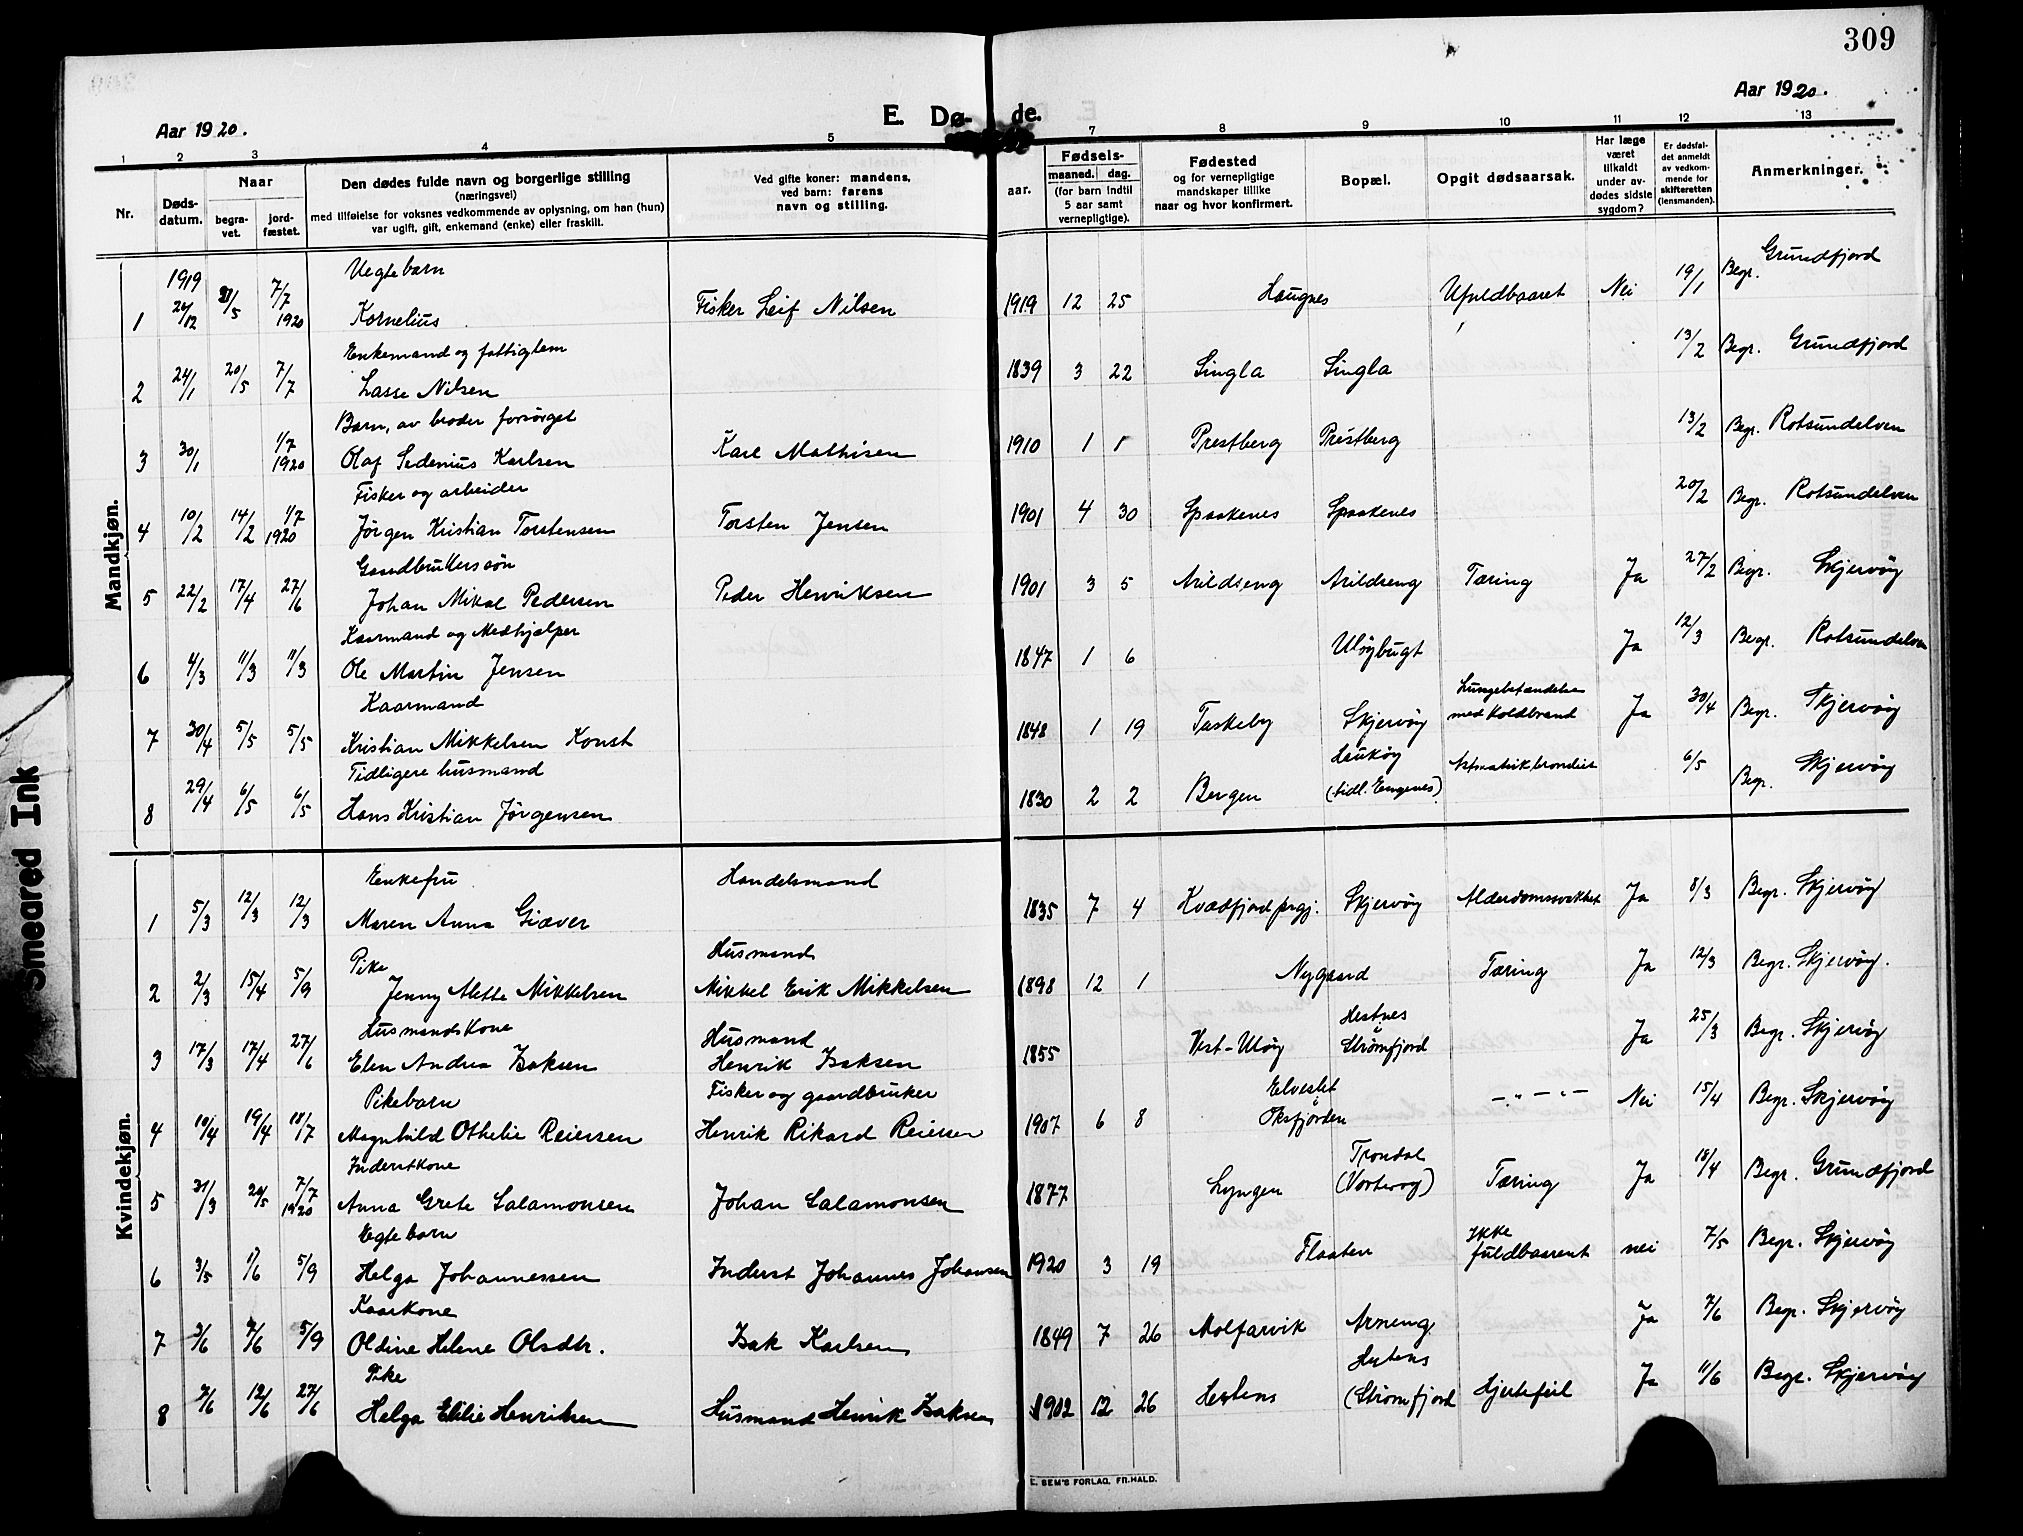 309
Aar 1920.
Aar 1920.
E. Dø- de.
1 2 3 4 5 7 8 9 10 11 12 13
Nr.
Døds-
datum.
Naar
begra-
vet.
jord-
fæstet.
Den dødes fulde navn og borgerlige stilling
(næringsvei)
med tilføielse for voksnes vedkommende av oplysning, om han (hun)
var ugift, gift, enkemand (enke) eller fraskilt.
Ved gifte koner: mandens,
ved barn: farens
navn og stilling.
aar.
Fødsels-
maaned. dag.
(for barn indtil
5 aar samt
vernepligtige).
Fødested
og for vernepligtige
mandskaper tillike
naar og hvor konfirmert.
Bopæl.
Opgit dødsaarsak.
Har læge
været
tilkaldt
under av-
dødes sidste
sygdom?
Er dødsfal-
det anmeldt
av vedkom-
mende for
skifteretten
(lensmanden).
Anmerkninger.
Mandkjøn.
1919 Uegte barn
1 26/12 /5 7/7 1920 Kornelius Fisker Leif Nilsen 1919 12 25 Haugnes Ufuldbaaret Nei 19/1 Begr. Grundfjord
Enkemand og fattiglem
2 24/1 20/5 7/7 Lasse Nilsen 1839 3 22 Singla Singla 13/2 Begr. Grundfjord
Barn, av broder forsørget
3 30/1 1/7 1920 Olaf Sedenius Karlsen Karl Mathisen 1910 1 1 Prestberg Prestberg 13/2 Begr. Rotsundelven
Fisker og arbeider
4 10/2 14/2 1/7 1920 Jørgen Kristian Torstensen Torsten Jensen 1901 4 30 Spaakenes Spaakenes 20/2 Begr. Rotsundelven
Gaardbrukersøn
5 22/2 17/4 27/6 Johan Mikal Pedersen Peder Henriksen 1901 3 5 Arildseng Arildseng Tæring Ja 27/2 Begr. Skjervøy
Kaarmand og Medhjælper
6 4/3 11/3 11/3 Ole Martin Jensen 1847 1 6 Uløybugt Ja 12/3 Begr. Rotsundelven
Kaarmand
7 30/4 5/5 5/5 Kristian Mikkelsen Konst 1848 1 19 Taskeby Skjervøy Lungebetændelse med Koldbrand Ja 30/4 Begr. Skjervøy
Tidligere husmand
8 29/4 6/5 6/5 Hans Kristian Jørgensen 1830 2 2 Bergen Haukøy (tidl. Engenes) 6/5 Begr. Skjervøy
Kvindekjøn.
Enkefru Handelsmand
1 5/3 12/3 12/3 Maren Anna Giæver 1835 7 4 Kvædfjord prgj. Skjervøy Alderdomssvakhet Ja 8/3 Begr. Skjervøy
Pike Husmand
2 2/3 15/4 5/9 Jenny Alette Mikkelsen Mikkel Erik Mikkelsen 1898 12 1 Nygaard Tæring Ja 12/3 Begr. Skjervøy.
Husmandskone Husmand Hestnes
3 17/3 17/4 27/6 Elen Andrea Isaksen Henrik Isaksen 1855 Vest-Uløy i Strømfjord Ja 25/3 Begr. Skjervøy
Pikebarn Fisker og gaardbruker Elveslet
4 10/4 19/4 18/7 Magnhild Othelie Reiersen Henrik Rikard Reiersen 1907 6 8 i Oksfjorden —„—„— Nei 15/4 Begr. Skjervøy
Inderstkone Trondal
5 31/3 20/5 7/7 1920 Anna Grete Salamonsen Johan Salamonsen 1877 Lyngen (Vorterøy) Tæring Ja 18/4 Begr. Grundfjord
Egte barn Ikke
6 3/5 1/6 5/9 Helga Johannessen Inderst Johannes Johansen 1920 3 19 Flaaten fuldbaarent nei 7/5 Begr. Skjervøy
Kaarkone
7 3/6 7/6 5/9 Oldine Helene Olsdtr. Isak Karlsen 1849 7 26 Molfarvik Arneng Ja 7/6 Begr. Skjervøy
Pike
8 7/6 12/6 27/6 Helga Elilie Henriksen Husmand Henrik Isaksen 1902 12 26 Hestens (Strømfjord Hjertefeil Ja 11/6 Begr. Skjervøy
E. SEM'S FORLAG, FR.HALD.
Smeared Ink